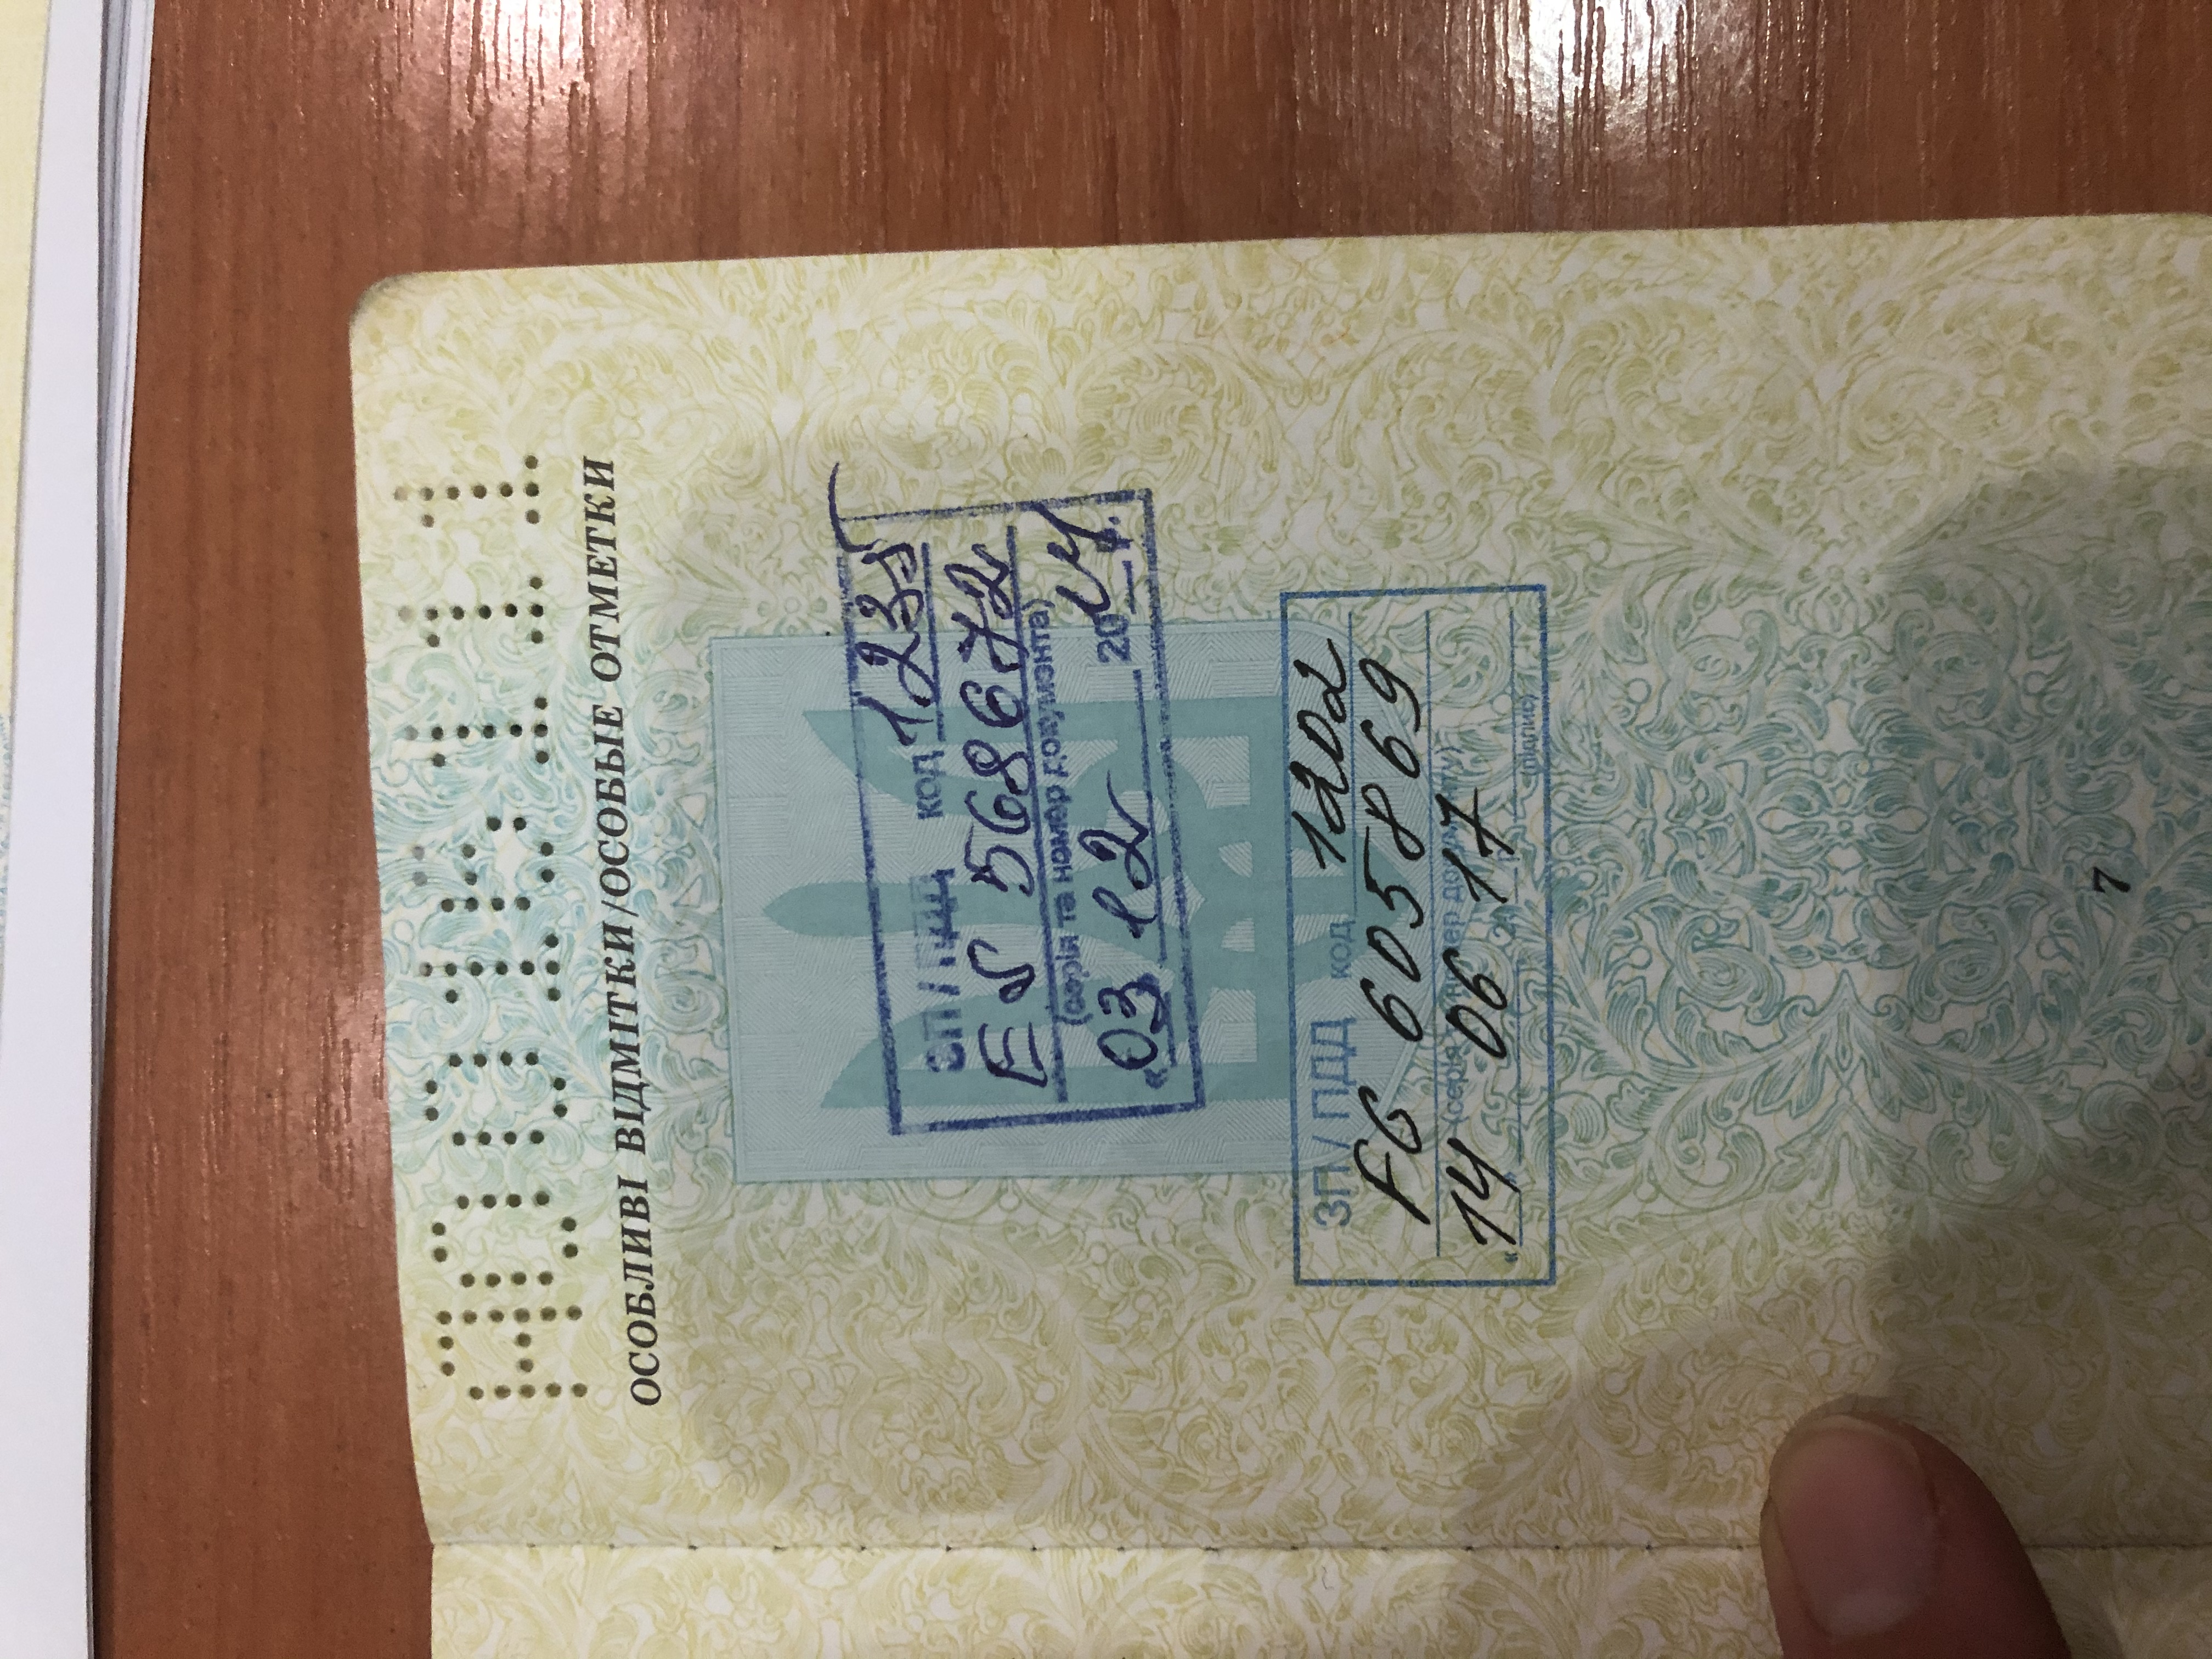 АО016111
ОСОБЛИВІ ВІДМІТКИ/ОСОБЫЕ ОТМЕТКИ
ЗП / ПДД код 1235
ES 568672
(серія та номер документа)
«03» 12 2014 р.
ЗП / ПДД код 1202
FG 605869
(серія та номер документу)
«14» 06 2017
(підпис)
7